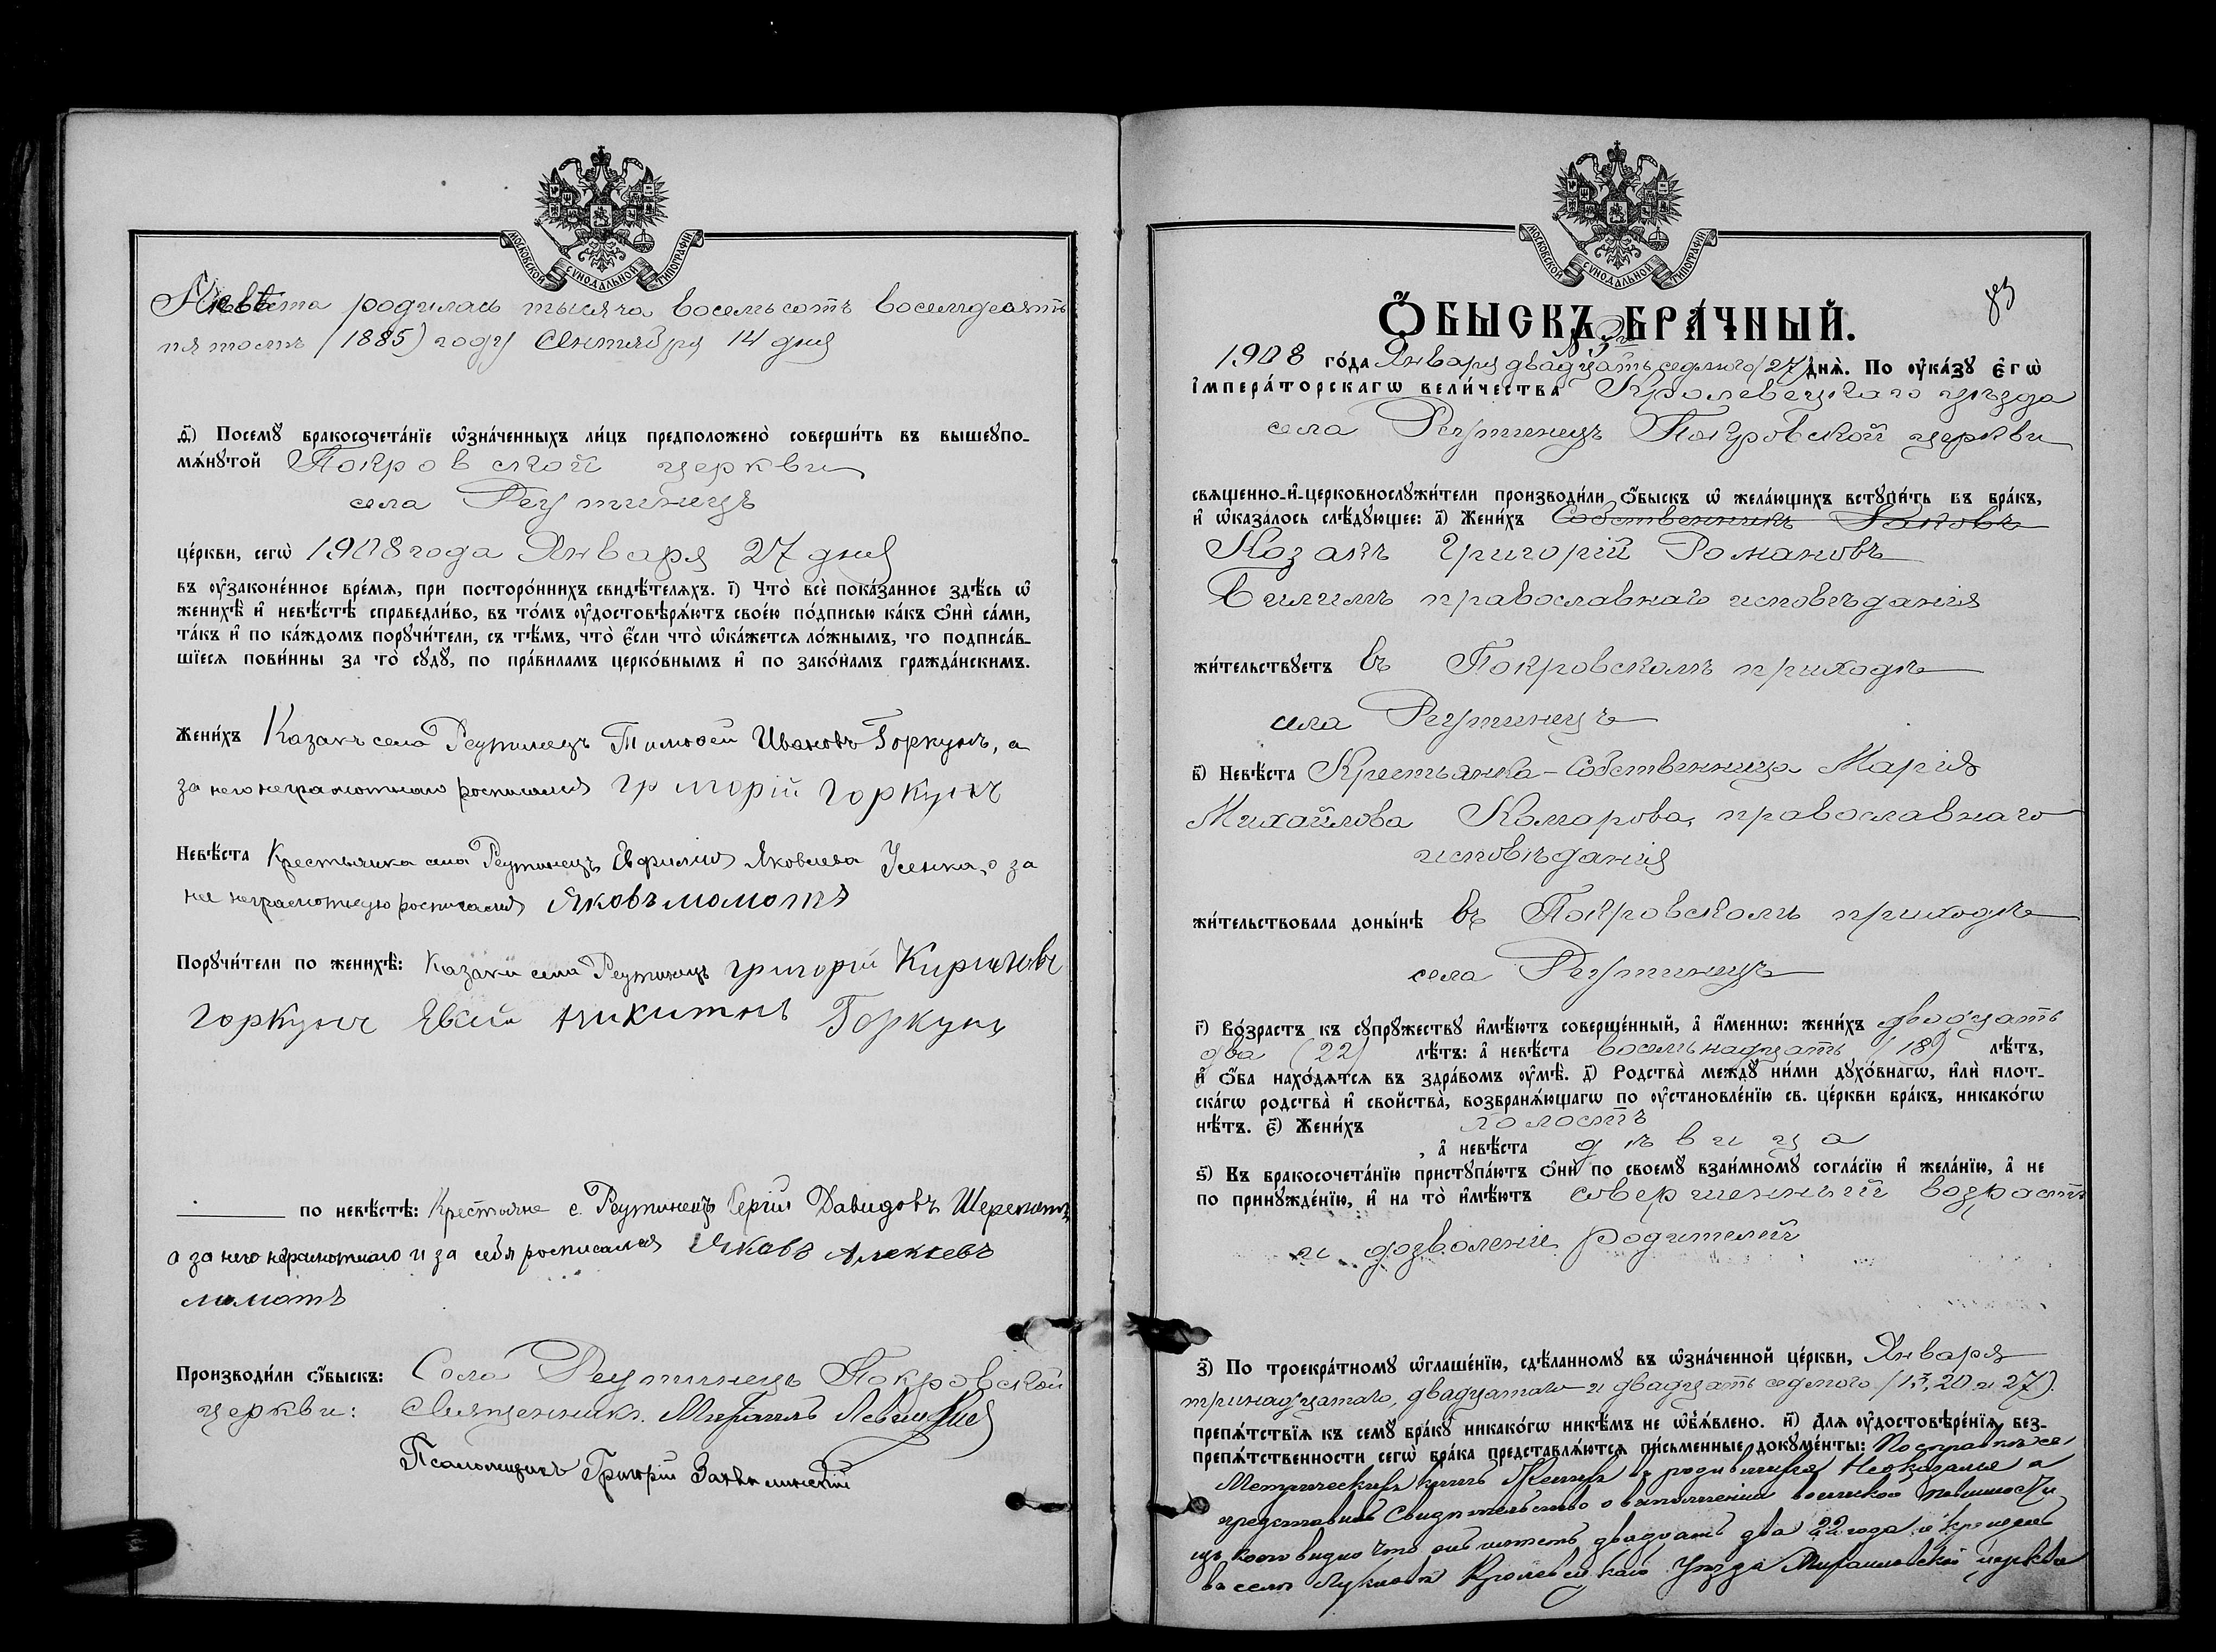 МОСКОВСКОЙ СѴНОДАЛЬНОЙ ТИПОГРАФІИ
Невѣста родилась тысяча восемьсотъ восемдесятъ
пятомъ (1885) году Сентября 14 дня
д҃) Посемꙋ̀ бракосочета́нїе ѡ҆зна́ченныхъ ли́цъ предположено̀ соверши́ть въ вышеꙋпо-
мѧ́нꙋтой Покровской церкви
села Реутинецъ
це́ркви, сегѡ̀ 1908 года Января 27 дня
въ ᲂу҆зако́ненное вре́мѧ, при посторо́ннихъ свидѣ́телѧхъ. і҃) Что̀ всѐ пока́занное здѣ́сь ѡ҆
женихѣ̀ и҆ невѣ́стѣ справедли́во, въ то́мъ ᲂу҆достовѣрѧ́ютъ свое́ю по́дписью ка́къ ѻ҆нѝ са́ми,
та́къ и҆ по ка́ждомъ порꙋчи́тели, съ тѣ́мъ, что̀ є҆́сли что̀ ѡ҆ка́жетсѧ ло́жнымъ, то подписа́в-
шїесѧ пови́нны за то̀ сꙋдꙋ̀, по пра́виламъ церко́внымъ и҆ по зако́намъ гражда́нскимъ.
Жени́хъ Казакъ села Реутинецъ Тимофей Ивановъ Горкунъ, а
за него неграмотнаго росписался григорій горкунъ
Невѣ́ста Крестьянка села Реутинецъ Евфимія Яковлева Усенка, а за
нее неграмотную росписался Яковъ мамотъ
Порꙋчи́тели по женихѣ̀: Казаки села Реутинецъ григорій Кириловъ
горкунъ Никитинъ Горкунъ
по невѣ́стѣ: Крестьяне с. Реутинецъ Сергій Давидовъ
а за него неграмотнаго и за себя росписался Яковъ Алексѣевъ
мамотъ
Производи́ли ѻ҆́быскъ: Села Реутинецъ Покровской
церкви: Священникъ Михаилъ
Псаломщикъ Григорій
МОСКОВСКОЙ СѴНОДАЛЬНОЙ ТИПОГРАФІИ
83
Ѻ҆́БЫСКЪ БРА́ЧНЫЙ.
№ 3й
1908 го́да Января двадцать седьмого (27) днѧ̀. По ᲂу҆ка́зꙋ є҆гѡ̀
і҆мпера́торскагѡ вели́чества Кролевецкаго уѣзда
села Реутинецъ Покровской церкви
свѧще́нно-и҆-церковнослꙋжи́тели производи́ли ѻ҆́быскъ ѡ҆ жела́ющихъ встꙋпи́ть въ бра́къ,
и҆ ѡ҆каза́лось слѣ́дꙋющее: а҃) Жени́хъ Собственникъ Яковъ
Козакъ Григорій Романовъ
православнаго исповѣданія
жи́тельствꙋетъ въ Покровскомъ приходѣ
села Реутинецъ
в҃) Невѣ́ста Крестьянка-Собственница Марія
Михайлова Комарова, православнаго
исповѣданія
жи́тельствовала доны́нѣ въ Покровскомъ приходѣ
села Реутинецъ
г҃) Во́зрастъ къ сꙋпрꙋ́жествꙋ и҆мѣ́ютъ соверше́нный, а҆ и҆́меннѡ: жени́хъ двадцать
два (22) лѣ́тъ: а҆ невѣ́ста восемьнадцать (18) лѣ́тъ,
и҆ ѻ҆́ба нахо́дѧтсѧ въ здра́вомъ ᲂу҆мѣ̀. д҃) Родства̀ междꙋ̀ ни́ми дꙋхо́внагѡ, и҆лѝ плот-
ска́гѡ родства̀ и҆ сво́йства, возбранѧ́ющагѡ по ᲂу҆становле́нїю св. це́ркви бра́къ, никако́гѡ
нѣ́тъ. є҃) Жени́хъ холостъ
, а҆ невѣ́ста дѣвица
ѕ҃) Въ бракосочета́нїю пристꙋпа́ютъ ѻ҆нѝ по своемꙋ̀ взаи́мномꙋ согла́сїю и҆ жела́нїю, а҆ не
по принꙋжде́нїю, и҆ на то̀ и҆мѣ́ютъ совершенный возрастъ
и дозволеніе родителей
з҃) По троекра́тномꙋ ѡ҆глаше́нїю, сдѣ́ланномꙋ въ ѡ҆зна́ченной це́ркви, Января
тринадцатаго, двадцатаго и двадцать седмого (13, 20 и 27).
препѧ́тствїѧ къ семꙋ̀ бра́кꙋ никако́гѡ никѣ́мъ не ѡ҆б̾ѧ́влено. и҃) Длѧ ᲂу҆достовѣре́нїѧ без-
препѧ́тственности сегѡ̀ бра́ка представлѧ́ютсѧ пи́сьменные докꙋме́нты: По справкѣ съ
Метрическихъ книгъ Жениха родившимся неоказался а
представилъ Свидѣтельство о выполненіи воинской повинности
изъ коего видно что онъ имѣетъ двадцать два 22 года и крещенъ
въ селѣ Кролевецкаго Уѣзда Михаиловской церкви